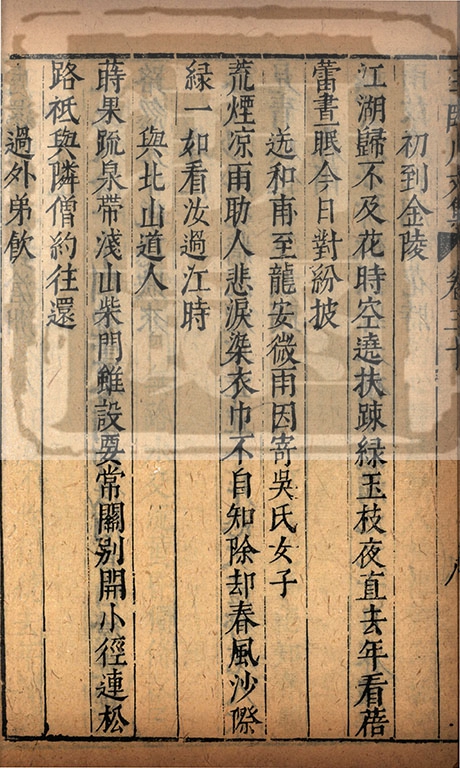 臨川文集 卷三十 八
初到金陵
江湖歸不及花時空遶扶踈綠玉枝夜直去年看蓓
蕾晝眠今日對紛披
送和甫至龍安微雨因寄吳氏女子
荒煙凉雨助人悲淚染衣巾不自知除却春風沙際
緑一如看汝過江時
與北山道人
蒔果疏泉帶淺山柴門雖設要常關别開小徑連松
路祗與隣僧約往還
過外弟飲